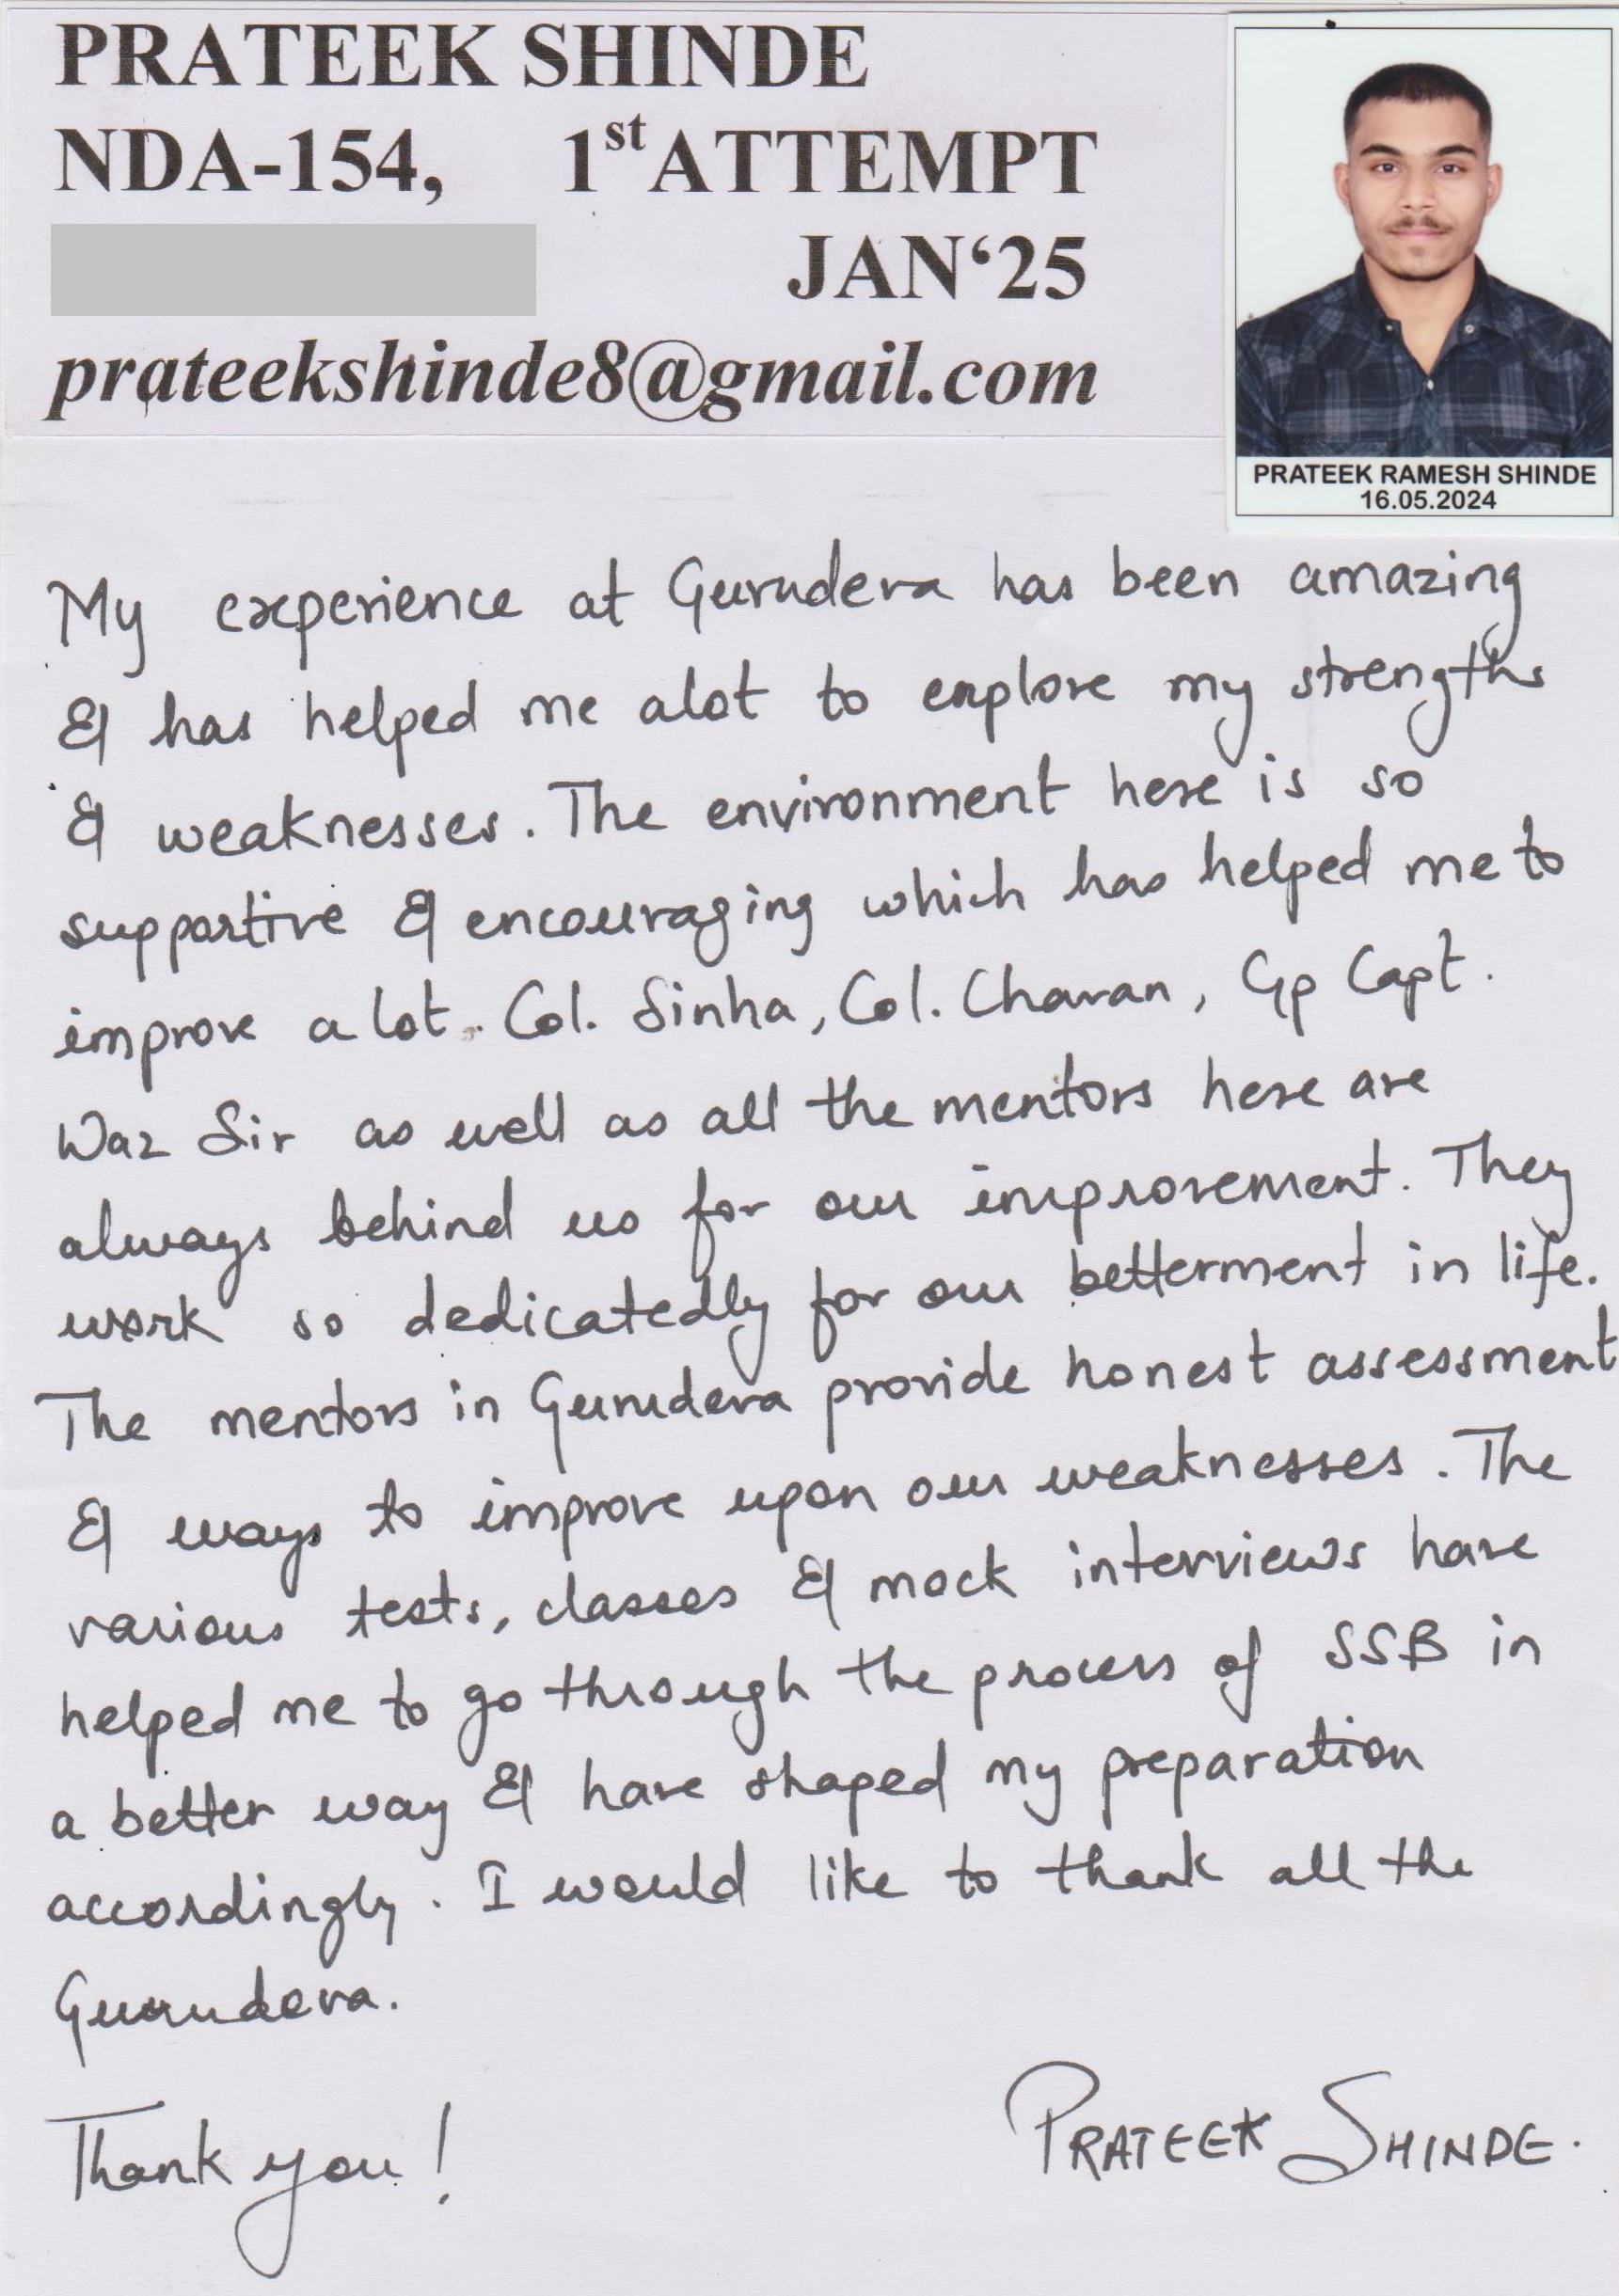 PRATEEK SHINDE
NDA-154, 1st ATTEMPT
JAN‘25
prateekshinde8@gmail.com
PRATEEK RAMESH SHINDE
16.05.2024
My experience at Gurudeva has been amazing
& has helped me alot to explore my strengths
& weaknesses. The environment here is so
supportive & encouraging which has helped me to
improve a lot. Col. Sinha, Col. Chavan, Gp Capt.
Waz Sir as well as all the mentors here are
always behind us for our improvement. They
work so dedicatedly for our betterment in life.
The mentors in Gurudeva provide honest assessment
& ways to improve upon our weaknesses. The
various tests, classes & mock interviews have
helped me to go through the process of SSB in
a better way & have shaped my preparation
accordingly. I would like to thank all the
Gurudeva.
Thank you!
PRATEEK SHINDE.